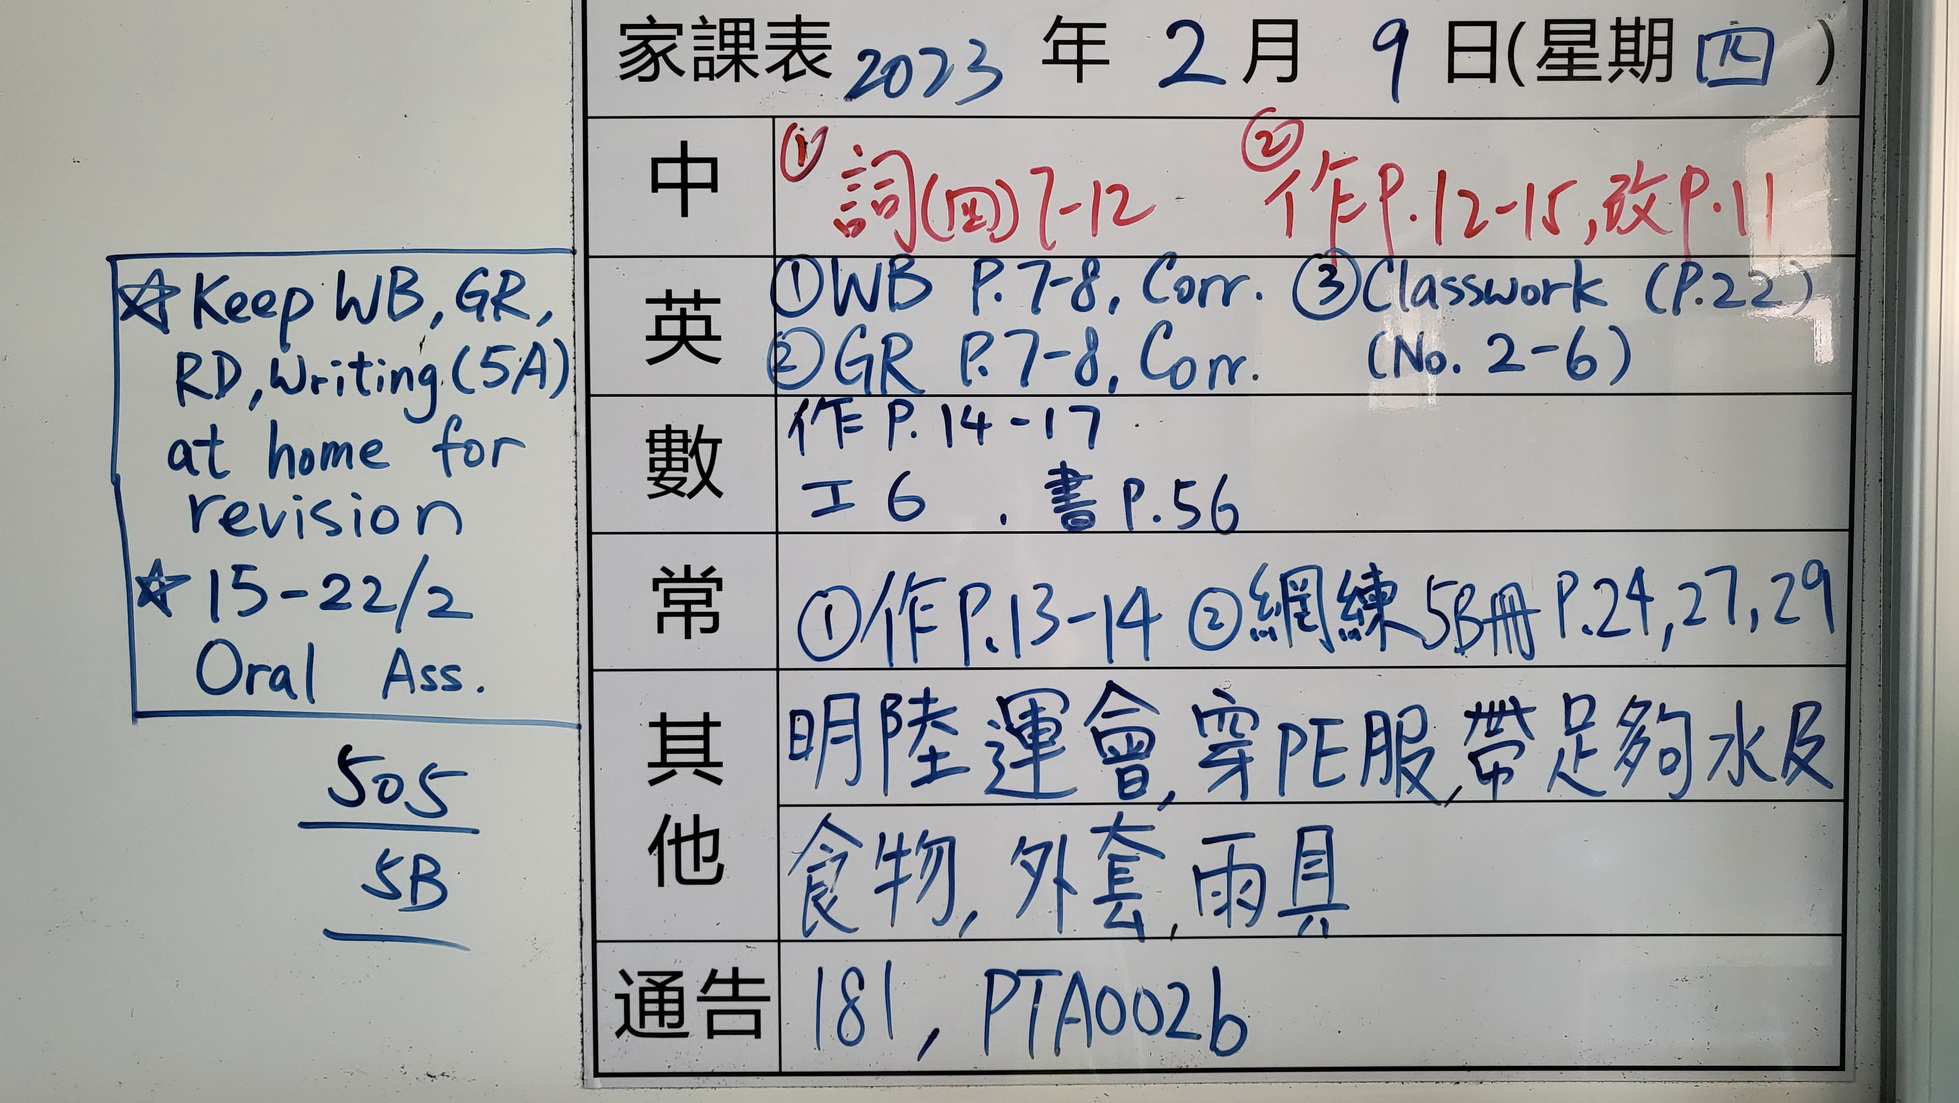 家課表 2023 年 2 月 9 日(星期四)
中 ① 詞(四)7-12 ② 作P.12-15,改P.11
英 ①WB P.7-8, Corr. ③Classwork (P.22)
②GR P.7-8, Corr. (No. 2-6)
數 作P.14-17
工6 . 書P.56
常 ①作P.13-14 ②網練5B冊P.24,27,29
其他 明陸運會,穿PE服,帶足夠水及
食物,外套,雨具
通告 181, PTA002b
☆Keep WB, GR,
RD, Writing (5A)
at home for
revision
☆15-22/2
Oral Ass.
505
5B